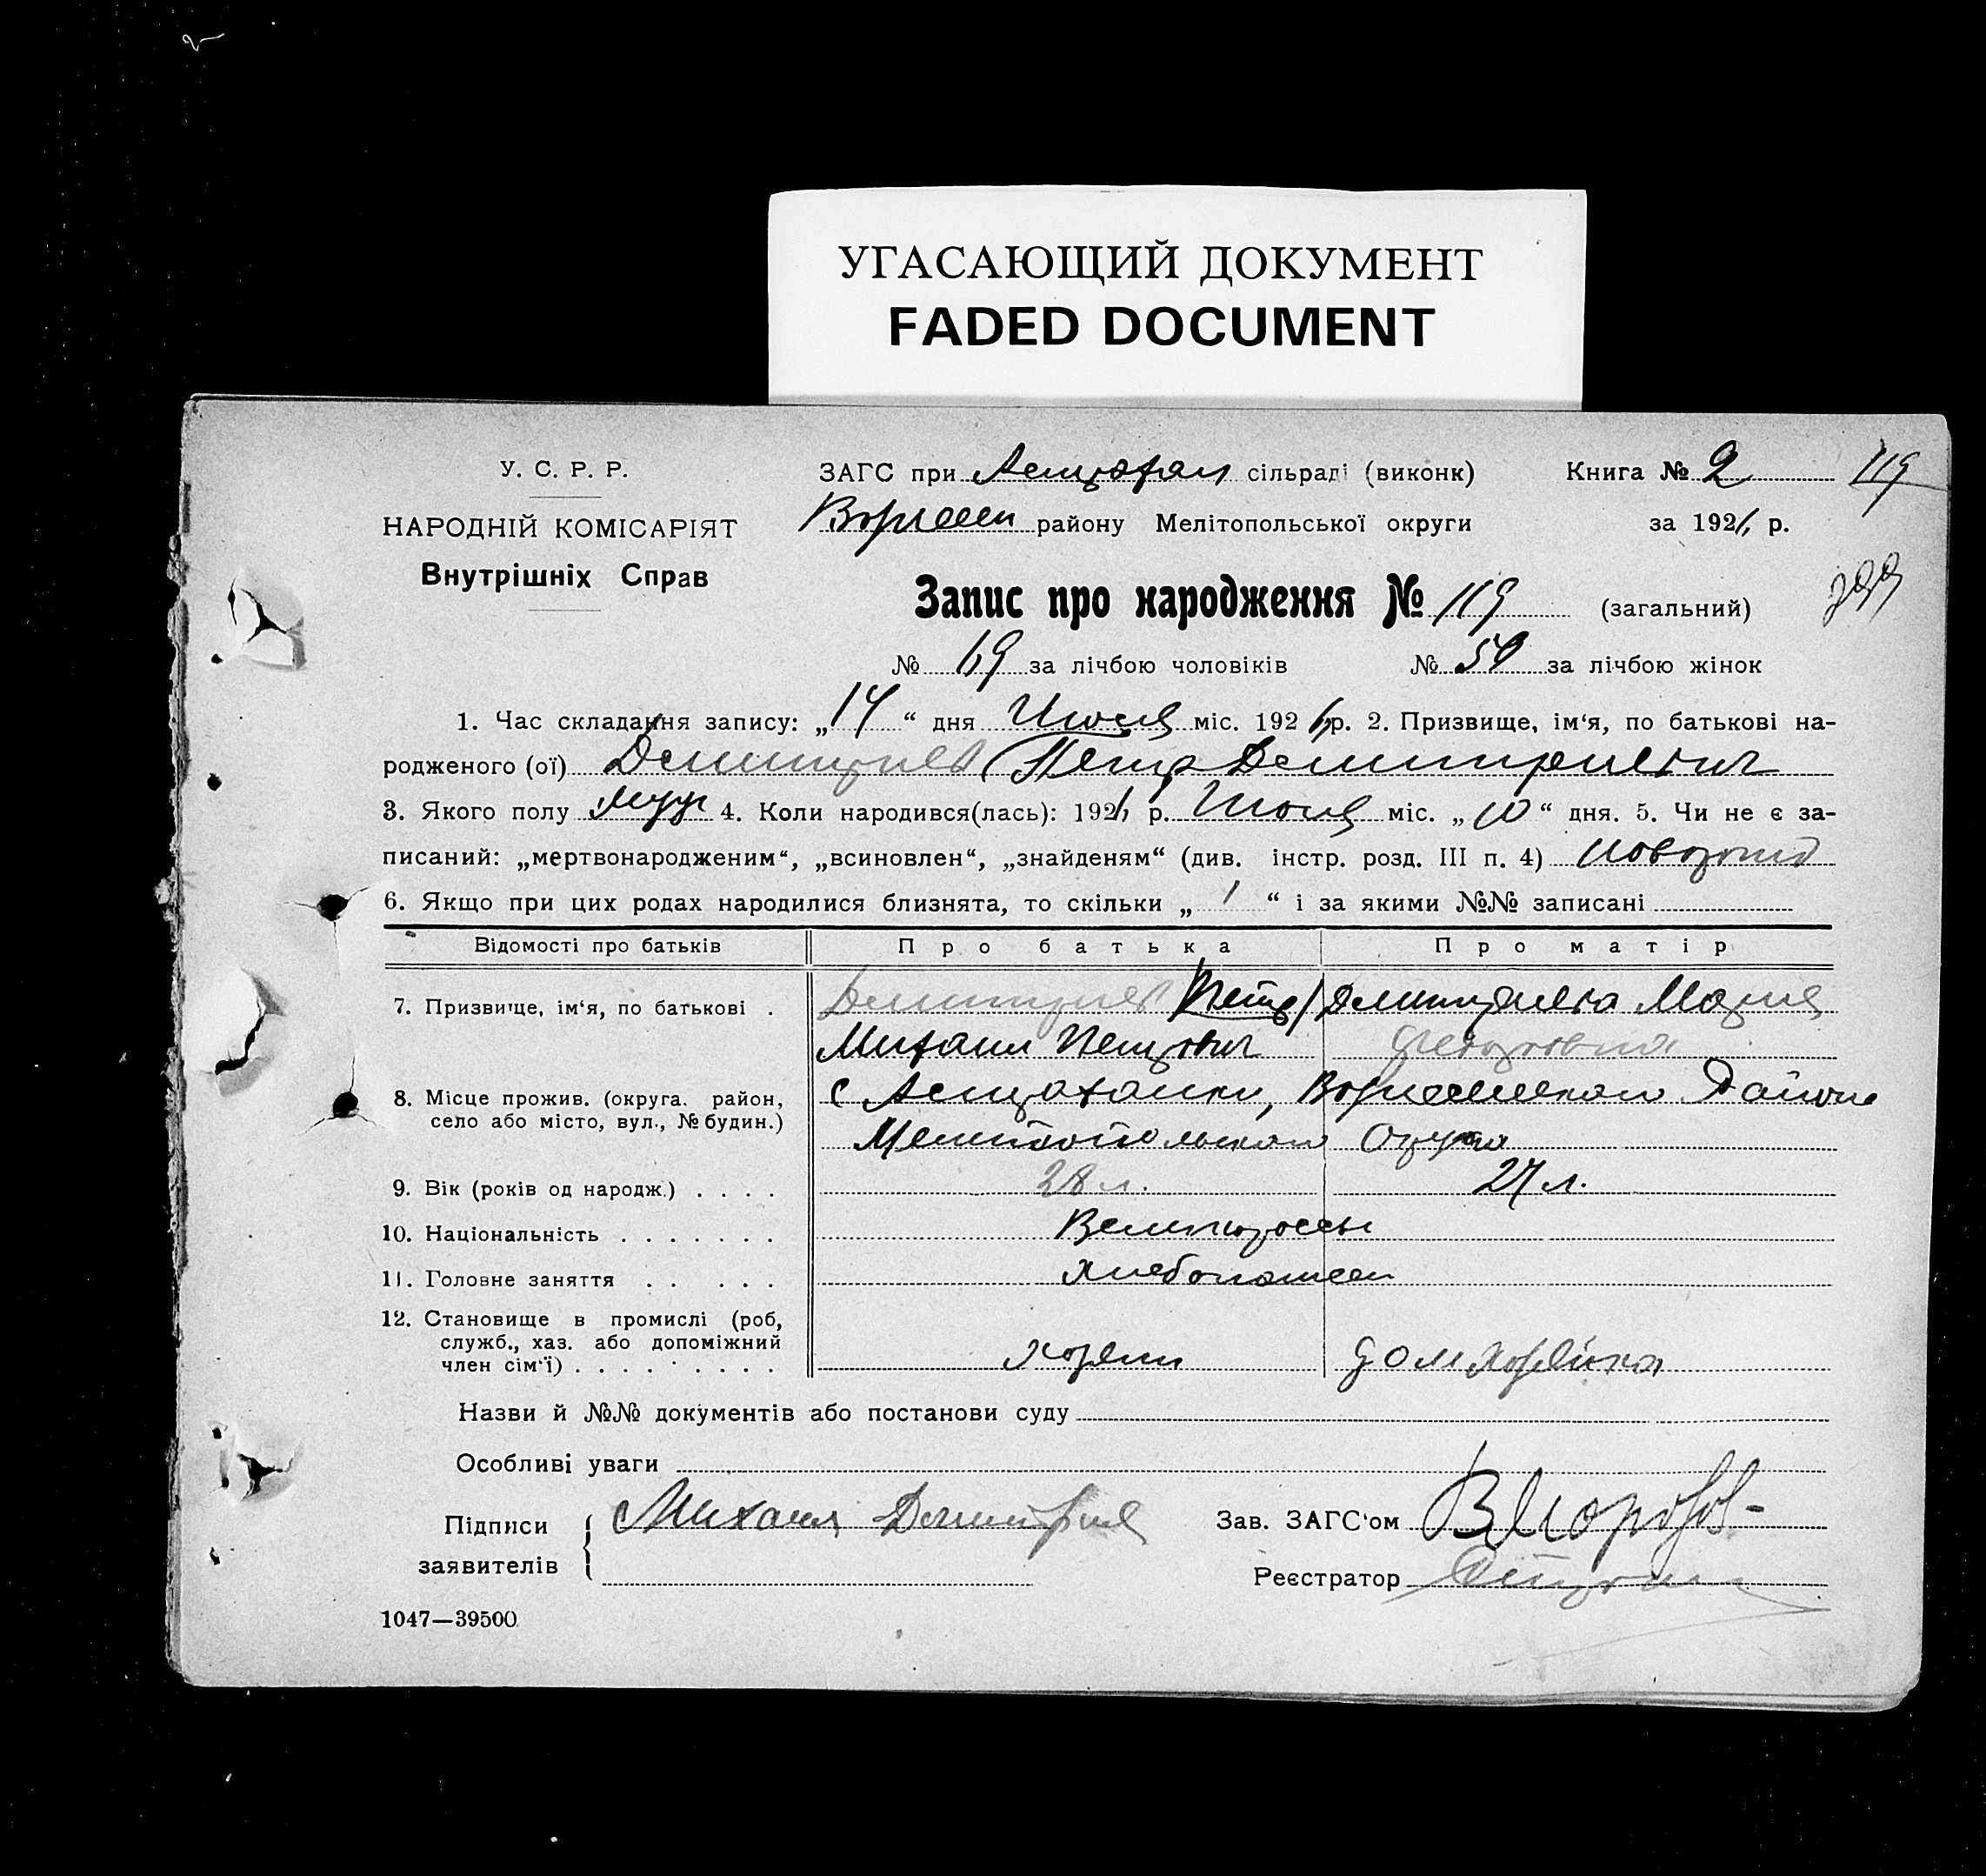 УГАСАЮЩИЙ ДОКУМЕНТ
FADED DOCUMENT
У. С. Р. Р.
НАРОДНІЙ КОМІСАРІЯТ
Внутрішніх Справ
ЗАГС при Астрахан сільраді (виконк)
району Мелітопольської округи
Книга № 2
119
за 1926 р.
Запис про народження № 119 (загальний)
№ 69 за лічбою чоловіків № 50 за лічбою жінок
1. Час складання запису: „14“ дня Июля міс. 1926 р. 2. Призвище, ім‘я, по батькові на-
родженого (ої) Дмитриев Петр Дмитриевич
3. Якого полу муж 4. Коли народився(лась): 1926 р. Июля міс. „10“ дня. 5. Чи не є за-
писаний: „мертвонародженим“, „всиновлен“, „знайденям“ (див. інстр. розд. III п. 4)
6. Якщо при цих родах народилися близнята, то скільки „1“ і за якими №№ записані
Відомості про батьків Про батька Про матір
7. Призвище, ім‘я, по батькові . Дмитриев Петр Дмитриева Мария
Михаил Петрович
8. Місце прожив. (округа. район, с Астраханки, Района
село або місто, вул., № будин.) Мелитопольского Округа
9. Вік (років од народж.) . . . . 28 л. 27 л.
10. Національність . . . . . . . Великоросы
11. Головне заняття . . . . . хлебопашец
12. Становище в промислі (роб,
служб., хаз. або допоміжний
член сім‘ї) . . . . . . . . . хозяин домхозяйка
Назви й №№ документів або постанови суду
Особливі уваги
Підписи
заявителів
Михаил Дмитриев
Зав. ЗАГС‘ом В Морозов
Реєстратор
1047—39500